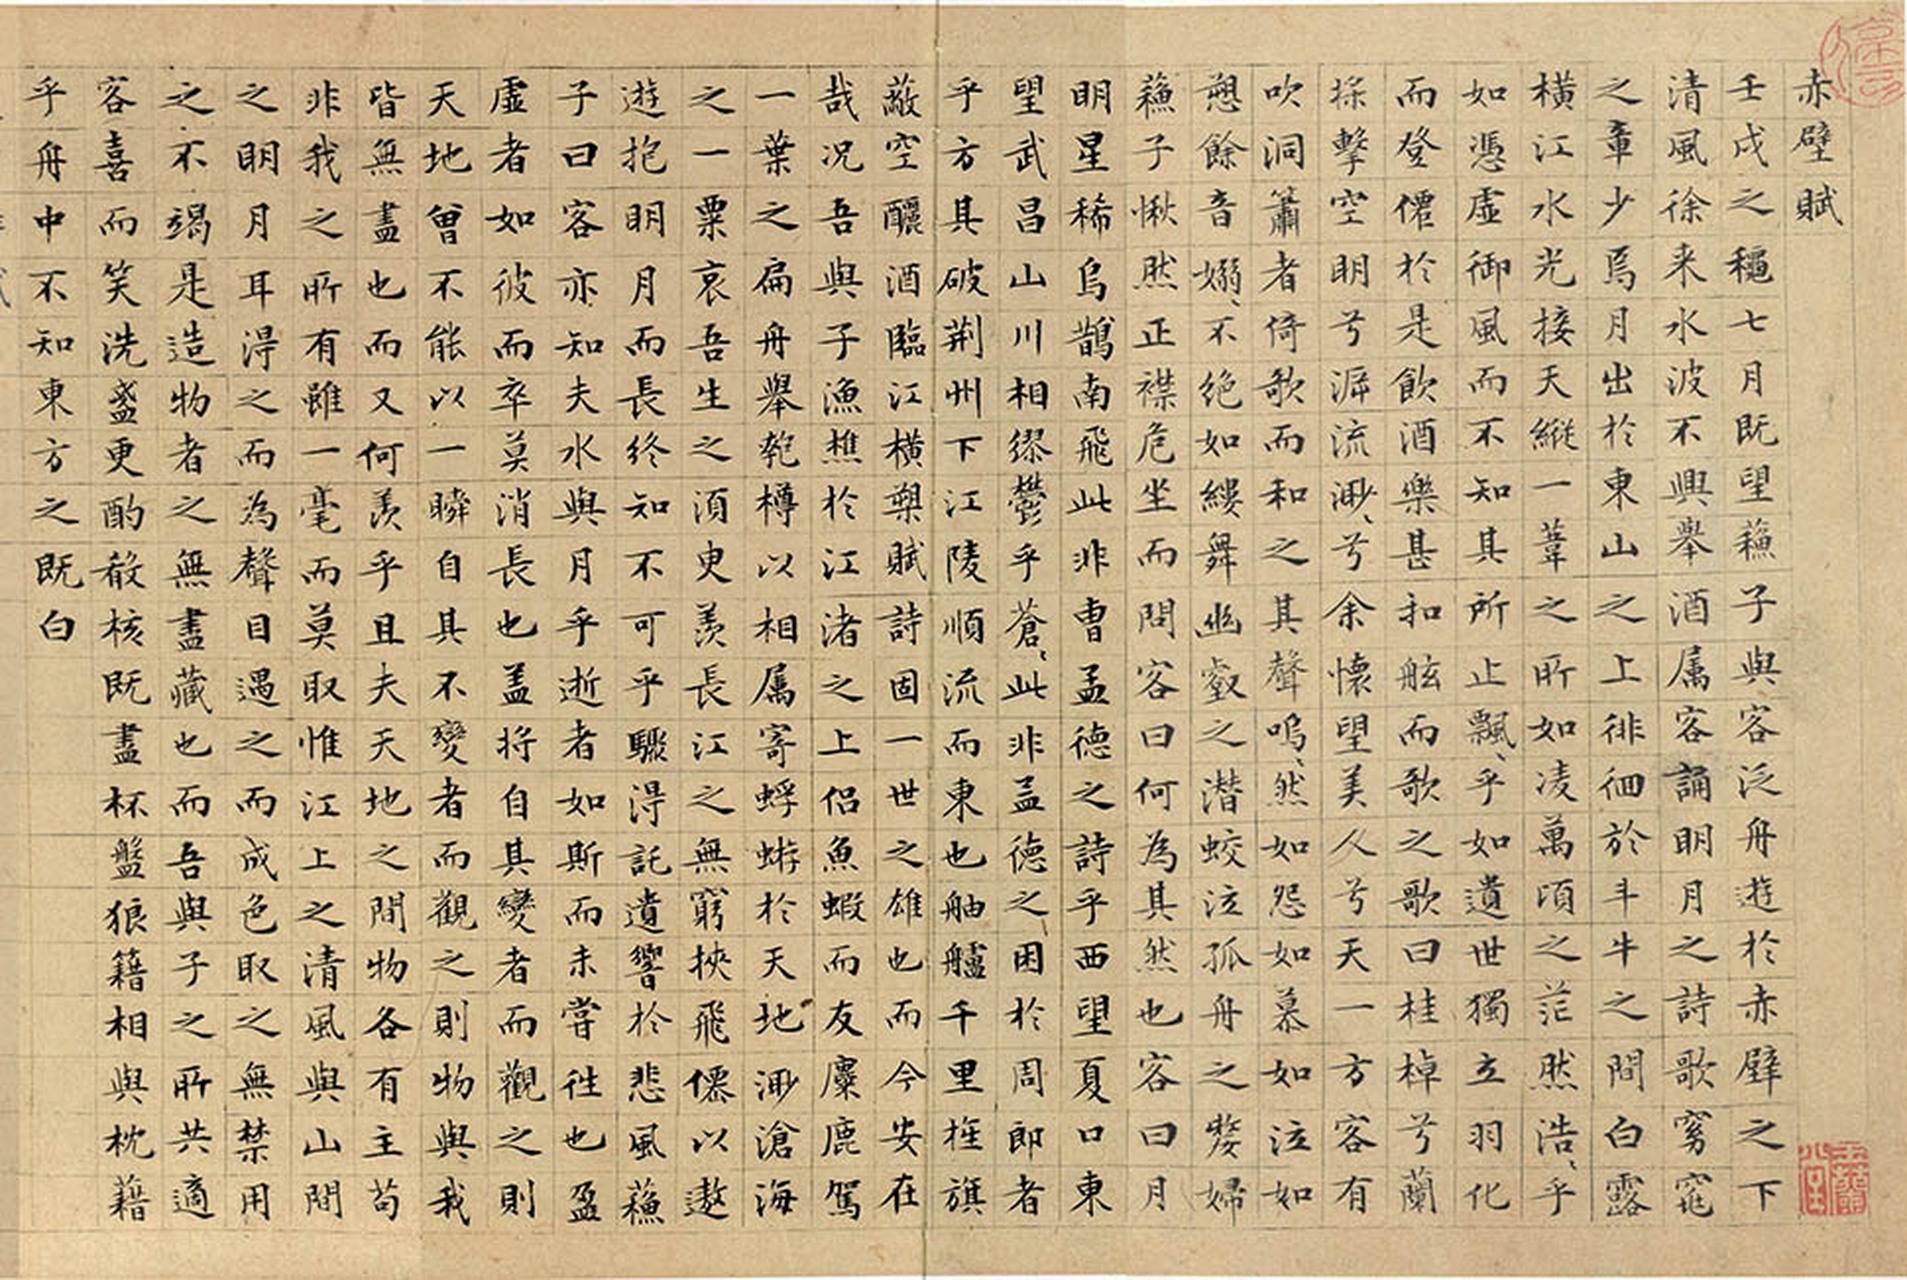 赤壁賦
壬戌之穐七月既望蘓子與客泛舟遊於赤壁之下
清風徐来水波不興舉酒属客誦明月之詩歌窈窕
之章少焉月出於東山之上徘徊於斗牛之間白露
橫江水光接天縱一葦之所如凌萬頃之茫然浩〻乎
如憑虛御風而不知其所止飄〻乎如遺世獨立羽化
而登僊於是飲酒樂甚扣舷而歌之歌曰桂棹兮蘭
採擊空明兮泝流渺〻兮余懷望美人兮天一方客有
吹洞簫者倚歌而和之其聲嗚〻然如怨如慕如泣如
愬餘音嫋〻不絕如縷舞幽壑之潛蛟泣孤舟之嫠婦
蘓子愀然正襟危坐而問客曰何為其然也客曰月
明星稀烏鵲南飛此非曹孟德之詩乎西望夏口東
望武昌山川相繆鬱乎蒼〻此非孟德之困於周郎者
乎方其破荆州下江陵順流而東也舳艫千里旌旗
蔽空釃酒臨江橫槊賦詩固一世之雄也而今安在
哉况吾與子漁樵於江渚之上侶魚蝦而友麋鹿駕
一葉之扁舟舉匏樽以相属寄蜉蝣於天地渺滄海
之一粟哀吾生之須臾羨長江之無窮挾飛僊以遨
遊抱明月而長終知不可乎驟得託遺響於悲風蘓
子曰客亦知夫水與月乎逝者如斯而未嘗往也盈
虛者如彼而卒莫消長也盖將自其變者而觀之則
天地曾不能以一瞬自其不變者而觀之則物與我
皆無盡也而又何羨乎且夫天地之間物各有主苟
非我之所有雖一毫而莫取惟江上之清風與山間
之明月耳得之而為聲目遇之而成色取之無禁用
之不竭是造物者之無盡藏也而吾與子之所共適
客喜而笑洗盞更酌殽核既盡杯盤狼籍相與枕藉
乎舟中不知東方之既白